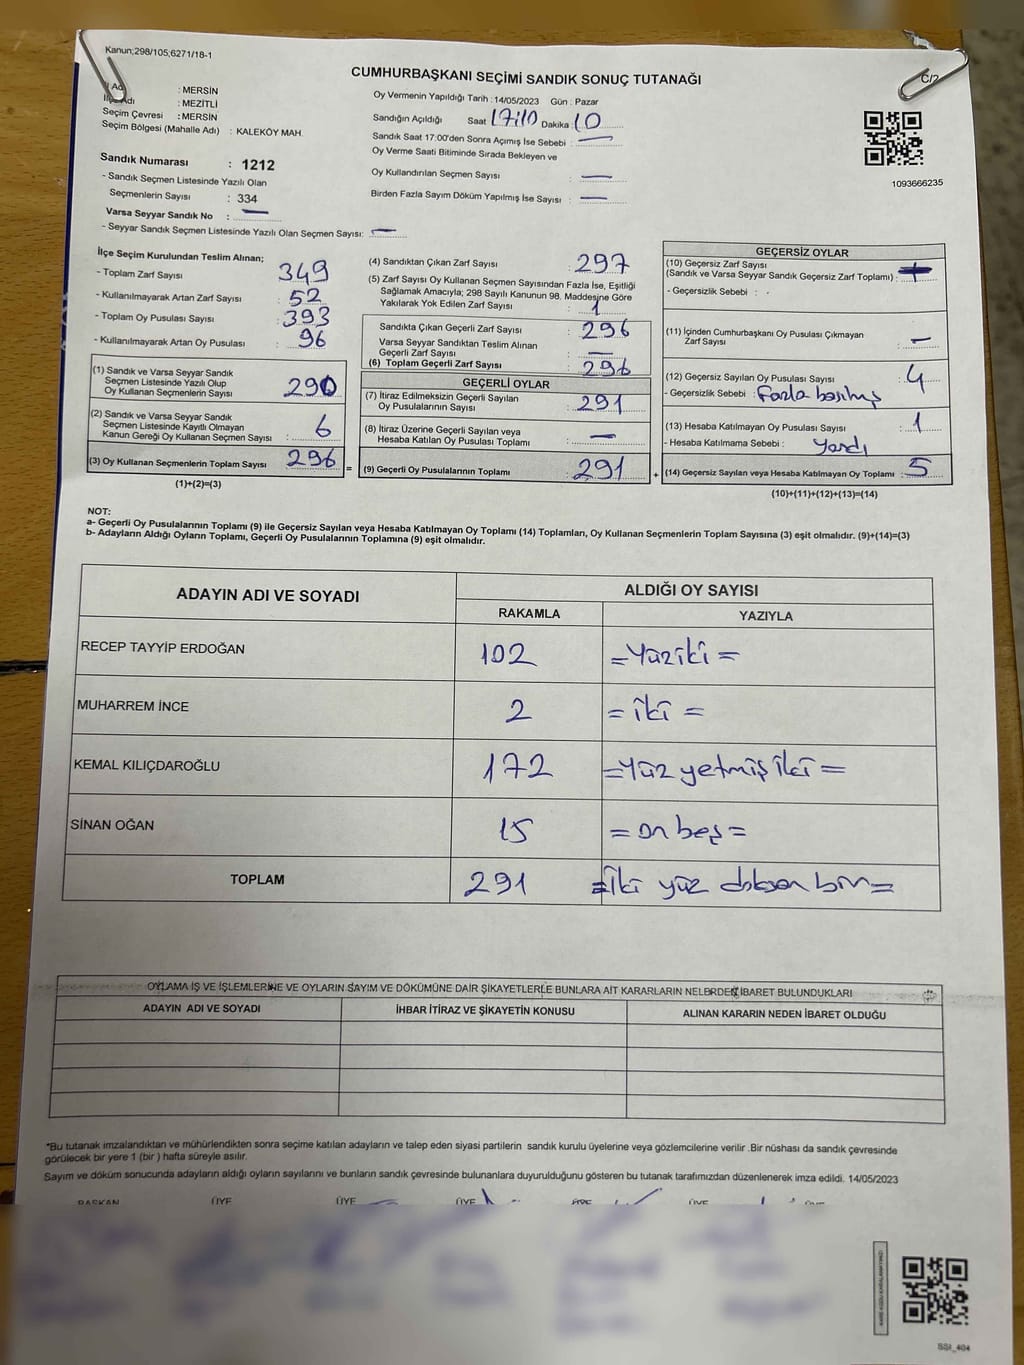 Kanun;298/105,6271/18-1
CUMHURBAŞKANI SEÇİMİ SANDIK SONUÇ TUTANAĞI
C/2
: MERSİN
İlçe Adı : MEZİTLİ
Seçim Çevresi : MERSİN
Seçim Bölgesi (Mahalle Adı) : KALEKÖY MAH.
Oy Vermenin Yapıldığı Tarih : 14/05/2023 Gün : Pazar
Sandığın Açıldığı Saat 17:10 Dakika : 10
Sandık Saat 17:00'den Sonra Açımış İse Sebebi : —
Oy Verme Saati Bitiminde Sırada Bekleyen ve
Oy Kullandırılan Seçmen Sayısı : —
Birden Fazla Sayım Döküm Yapılmış İse Sayısı : —
1093666235
Sandık Numarası : 1212
- Sandık Seçmen Listesinde Yazılı Olan
Seçmenlerin Sayısı : 334
Varsa Seyyar Sandık No : —
- Seyyar Sandık Seçmen Listesinde Yazılı Olan Seçmen Sayısı: —
İlçe Seçim Kurulundan Teslim Alınan;
- Toplam Zarf Sayısı : 349
- Kullanılmayarak Artan Zarf Sayısı : 52
- Toplam Oy Pusulası Sayısı : 393
- Kullanılmayarak Artan Oy Pusulası : 96
(1) Sandık ve Varsa Seyyar Sandık
Seçmen Listesinde Yazılı Olup
Oy Kullanan Seçmenlerin Sayısı : 290
(2) Sandık ve Varsa Seyyar Sandık
Seçmen Listesinde Kayıtlı Olmayan
Kanun Gereği Oy Kullanan Seçmen Sayısı : 6
(3) Oy Kullanan Seçmenlerin Toplam Sayısı : 296 =
(1)+(2)=(3)
(4) Sandıktan Çıkan Zarf Sayısı : 297
(5) Zarf Sayısı Oy Kullanan Seçmen Sayısından Fazla İse, Eşitliği
Sağlamak Amacıyla; 298 Sayılı Kanunun 98. Maddesine Göre
Yakılarak Yok Edilen Zarf Sayısı : 1
Sandıkta Çıkan Geçerli Zarf Sayısı : 296
Varsa Seyyar Sandıktan Teslim Alınan
Geçerli Zarf Sayısı : —
(6) Toplam Geçerli Zarf Sayısı : 296
GEÇERLİ OYLAR
(7) İtiraz Edilmeksizin Geçerli Sayılan
Oy Pusulalarının Sayısı : 291
(8) İtiraz Üzerine Geçerli Sayılan veya
Hesaba Katılan Oy Pusulası Toplamı : —
(9) Geçerli Oy Pusulalarının Toplamı : 291 +
GEÇERSİZ OYLAR
(10) Geçersiz Zarf Sayısı
(Sandık ve Varsa Seyyar Sandık Geçersiz Zarf Toplamı) :
- Geçersizlik Sebebi :
(11) İçinden Cumhurbaşkanı Oy Pusulası Çıkmayan
Zarf Sayısı : —
(12) Geçersiz Sayılan Oy Pusulası Sayısı : 4
- Geçersizlik Sebebi : Fazla basılmış
(13) Hesaba Katılmayan Oy Pusulası Sayısı : 1
- Hesaba Katılmama Sebebi : yandı
(14) Geçersiz Sayılan veya Hesaba Katılmayan Oy Toplamı : 5
(10)+(11)+(12)+(13)=(14)
NOT:
a- Geçerli Oy Pusulalarının Toplamı (9) ile Geçersiz Sayılan veya Hesaba Katılmayan Oy Toplamı (14) Toplamları, Oy Kullanan Seçmenlerin Toplam Sayısına (3) eşit olmalıdır. (9)+(14)=(3)
b- Adayların Aldığı Oyların Toplamı, Geçerli Oy Pusulalarının Toplamına (9) eşit olmalıdır.
ADAYIN ADI VE SOYADI
ALDIĞI OY SAYISI
RAKAMLA YAZIYLA
RECEP TAYYİP ERDOĞAN 102 =Yüziki=
MUHARREM İNCE 2 =iki=
KEMAL KILIÇDAROĞLU 172 =Yüz yetmiş iki=
SİNAN OĞAN 15 =on beş=
TOPLAM 291 =İki yüz doksan bir=
OYLAMA İŞ VE İŞLEMLERİNE VE OYLARIN SAYIM VE DÖKÜMÜNE DAİR ŞİKAYETLERLE BUNLARA AİT KARARLARIN NELERDEN İBARET BULUNDUKLARI
ADAYIN ADI VE SOYADI İHBAR İTİRAZ VE ŞİKAYETİN KONUSU ALINAN KARARIN NEDEN İBARET OLDUĞU
*Bu tutanak imzalandıktan ve mühürlendikten sonra seçime katılan adayların ve talep eden siyasi partilerin sandık kurulu üyelerine veya gözlemcilerine verilir .Bir nüshası da sandık çevresinde
görülecek bir yere 1 (bir ) hafta süreyle asılır.
Sayım ve döküm sonucunda adayların aldığı oyların sayılarını ve bunların sandık çevresinde bulunanlara duyurulduğunu gösteren bu tutanak tarafımızdan düzenlenerek imza edildi. 14/05/2023
BAŞKAN ÜYE ÜYE ÜYE ÜYE ÜYE ÜYE
SSI_404